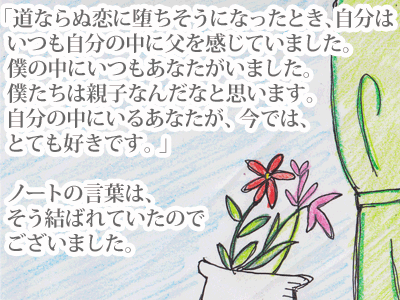 「道ならぬ恋に堕ちそうになったとき、自分は
いつも自分の中に父を感じていました。
僕の中にいつもあなたがいました。
僕たちは親子なんだなと思います。
自分の中にいるあなたが、今では、
とても好きです。」
ノートの言葉は、
そう結ばれていたので
ございました。